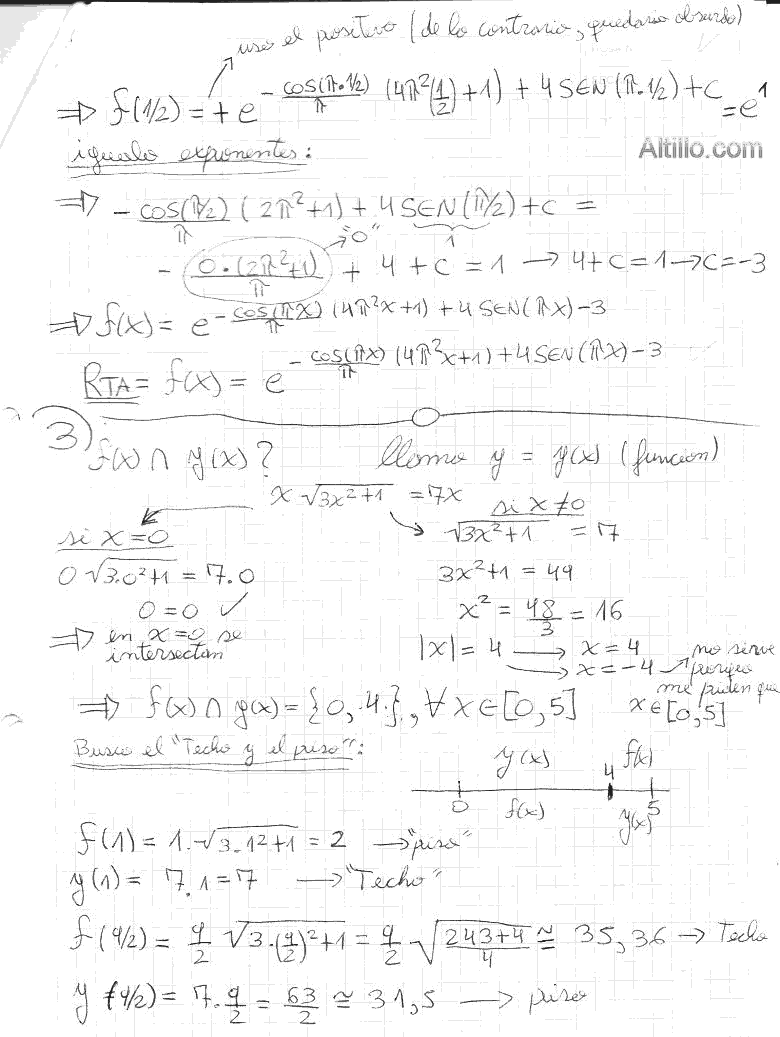 uso el positivo (de lo contrario, quedaria absurdo)
⇒ f(1/2) = + e^{-\frac{cos(π·1/2)}{π} (4π²(1/2)+1) + 4 SEN(π·1/2) + C} = e^1
igualo exponentes:
Altillo.com
⇒ - \frac{cos(π/2)}{π} (2π²+1) + 4 SEN(π/2) + C =
"0" 1
- \frac{0·(2π²+1)}{π} + 4 + C = 1 → 4+C = 1 → C = -3
⇒ f(x) = e^{-\frac{cos(πx)}{π} (4π²x+1) + 4 SEN(πx) - 3}
RTA = f(x) = e^{-\frac{cos(πx)}{π} (4π²x+1) + 4 SEN(πx) - 3}
3) f(x) ∩ y(x)? Llamo y = y(x) (función)
x √(3x²+1) = 7x
si x=0
si x≠0
√(3x²+1) = 17
0 √(3·0²+1) = 7·0
3x²+1 = 49
0 = 0 ✓
x² = 48/3 = 16
⇒ en x=0 se intersectan
|x| = 4 → x = 4
→ x = -4 → no sirve porque me piden que x∈[0,5]
⇒ f(x) ∩ y(x) = {0, 4}, ∀ x ∈ [0,5]
Busco el "Techo y el piso":
y(x) 4 f(x)
0 f(x) y(x) 5
f(1) = 1·√(3·1²+1) = 2 → "piso"
y(1) = 7·1 = 7 → "Techo"
f(9/2) = 9/2 √(3·(9/2)²+1) = 9/2 √((243+4)/4) ≅ 35,36 → Techo
y(9/2) = 7·9/2 = 63/2 ≅ 31,5 → piso